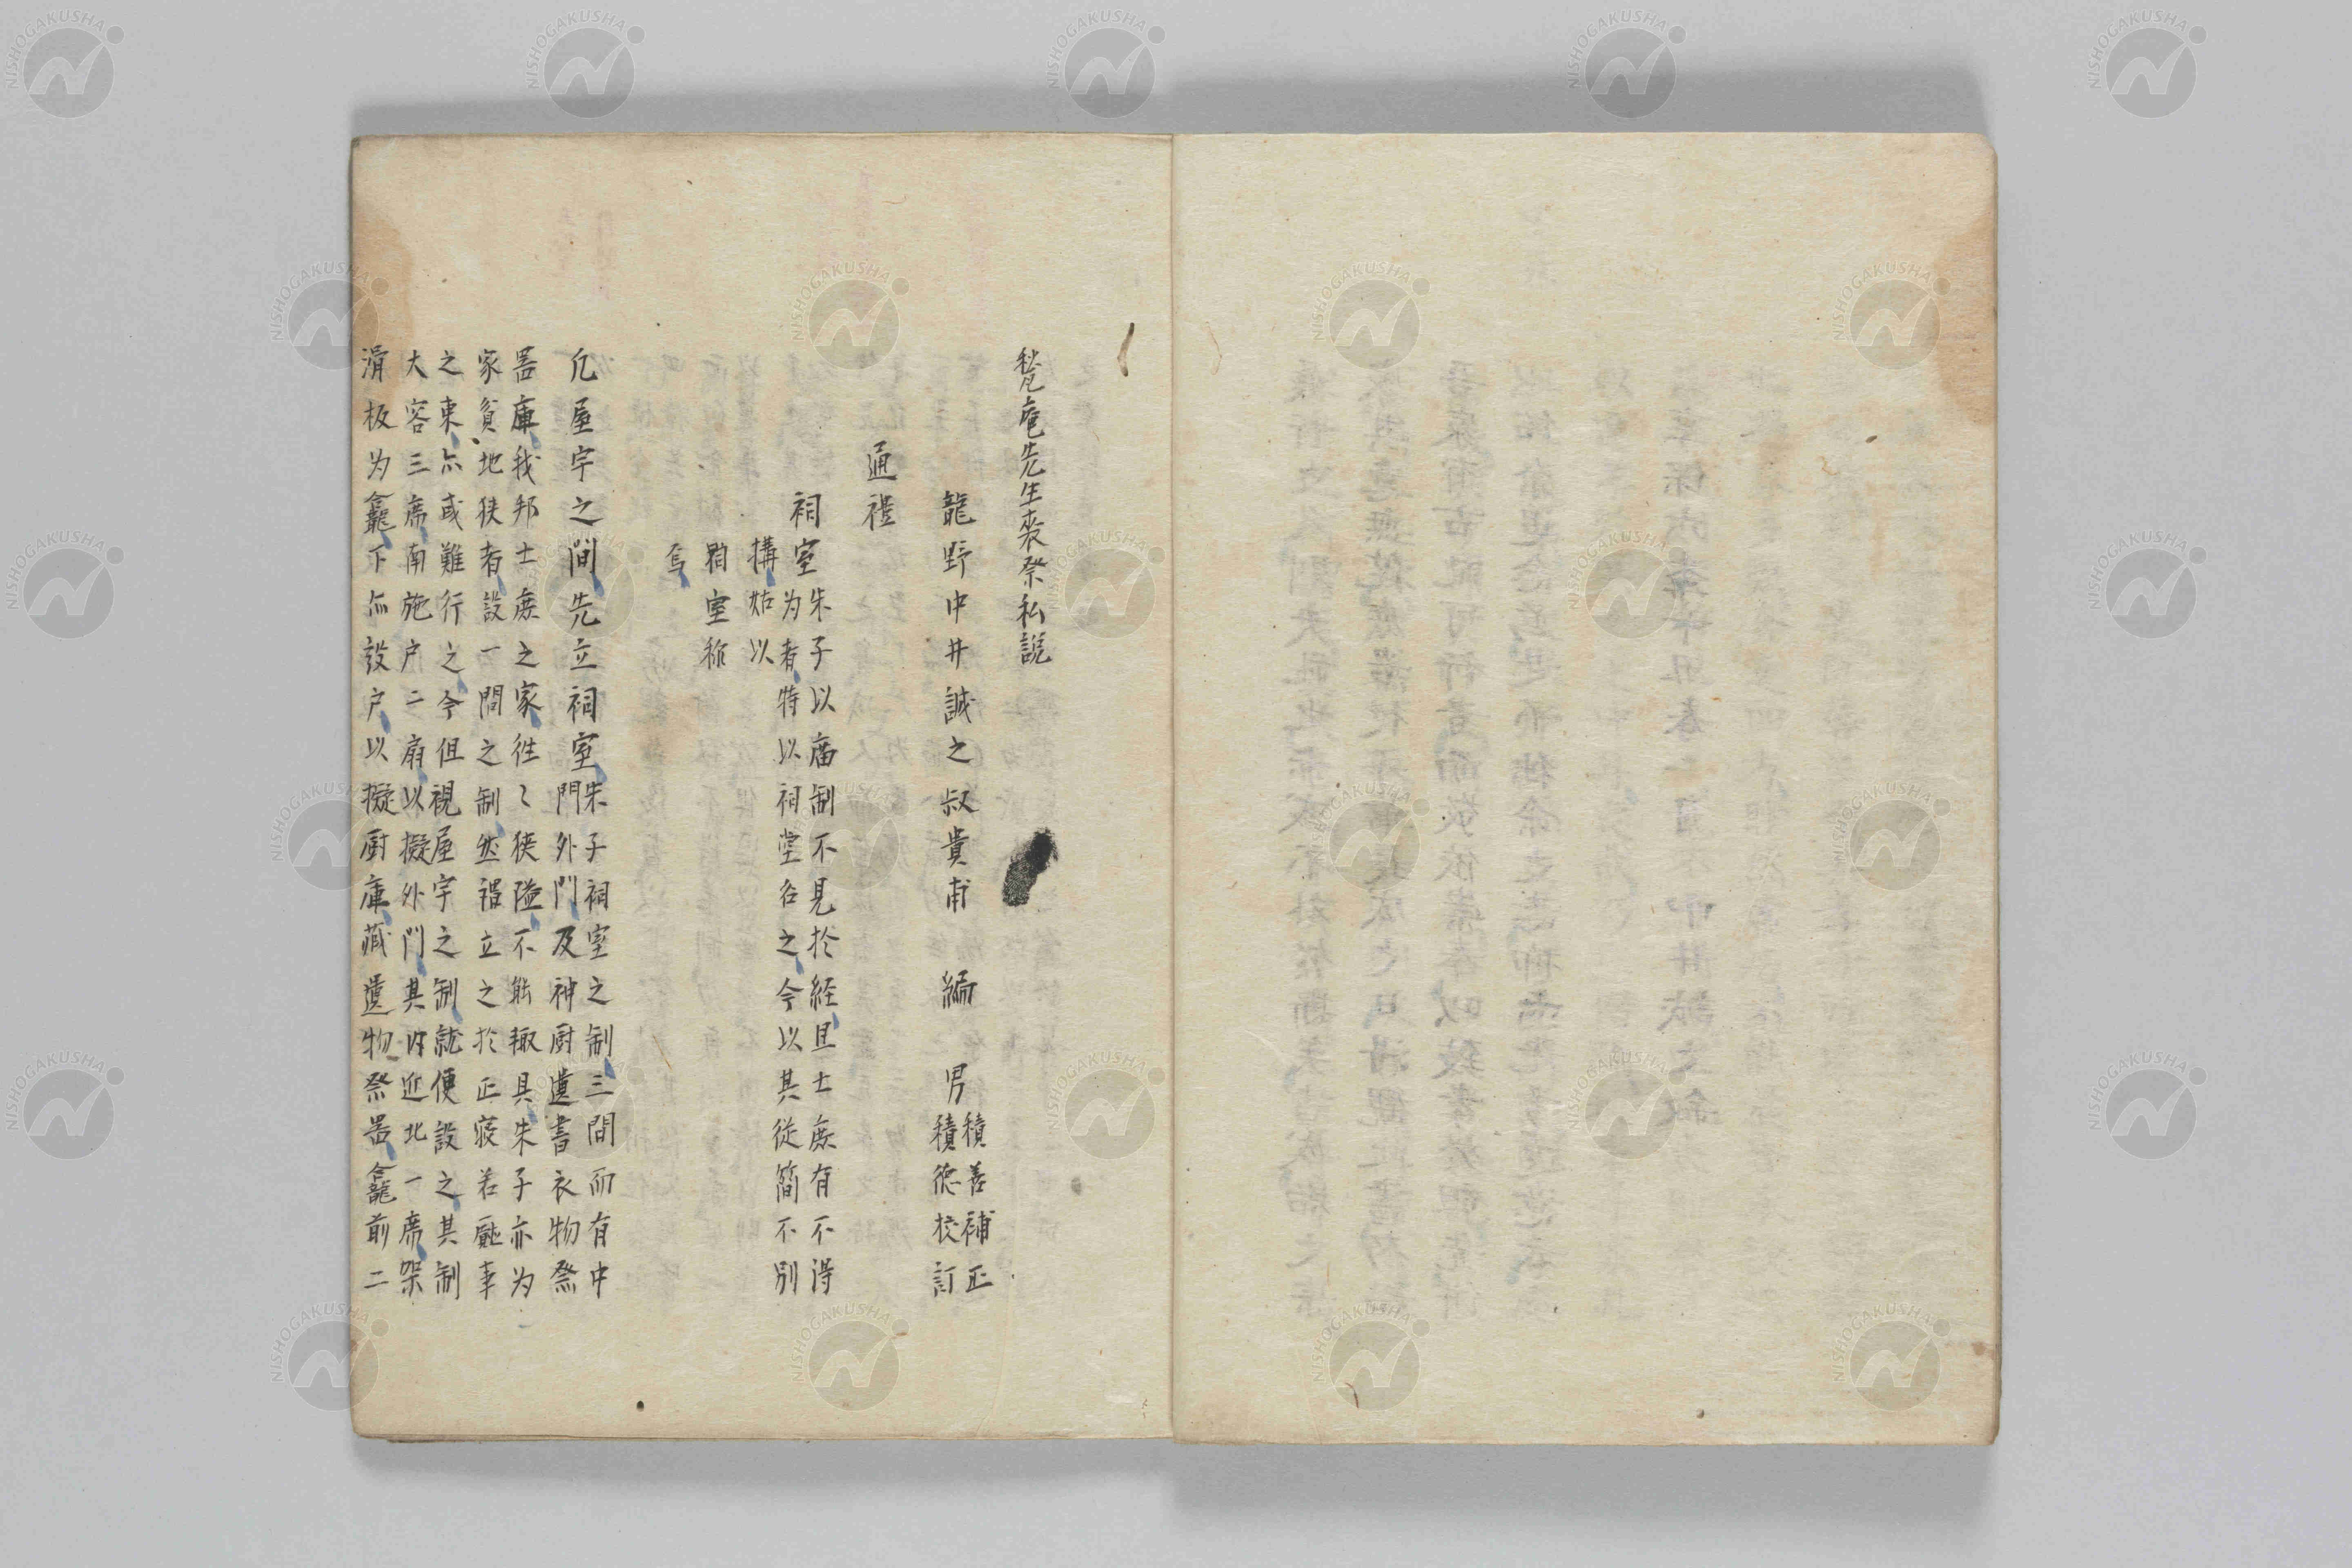 甃庵先生喪祭私說
龍野中井誠之叔貴甫 編 男 積善補正
積德校訂
通禮
祠室 朱子以庿制不見於経且士庶有不得
为者特以祠堂名之今以其從簡不別
構姑以
祠室称
焉
凢屋宇之間先立祠室 朱子祠室之制三間而有中
門外門及神厨遺書衣物祭
噐庫我邦士庶之家徃〻狭隘不能趣具朱子亦为
家貧地狭者設一間之制然猶立之於正寝若廳事
之東尒或難行之今但視屋宇之制就便設之其制
大容三席南施户二扇以擬外門其内近北一席架
滑板为龕下尒設户以擬厨庫藏遺物祭噐龕前二
NISHOGAKUSHA